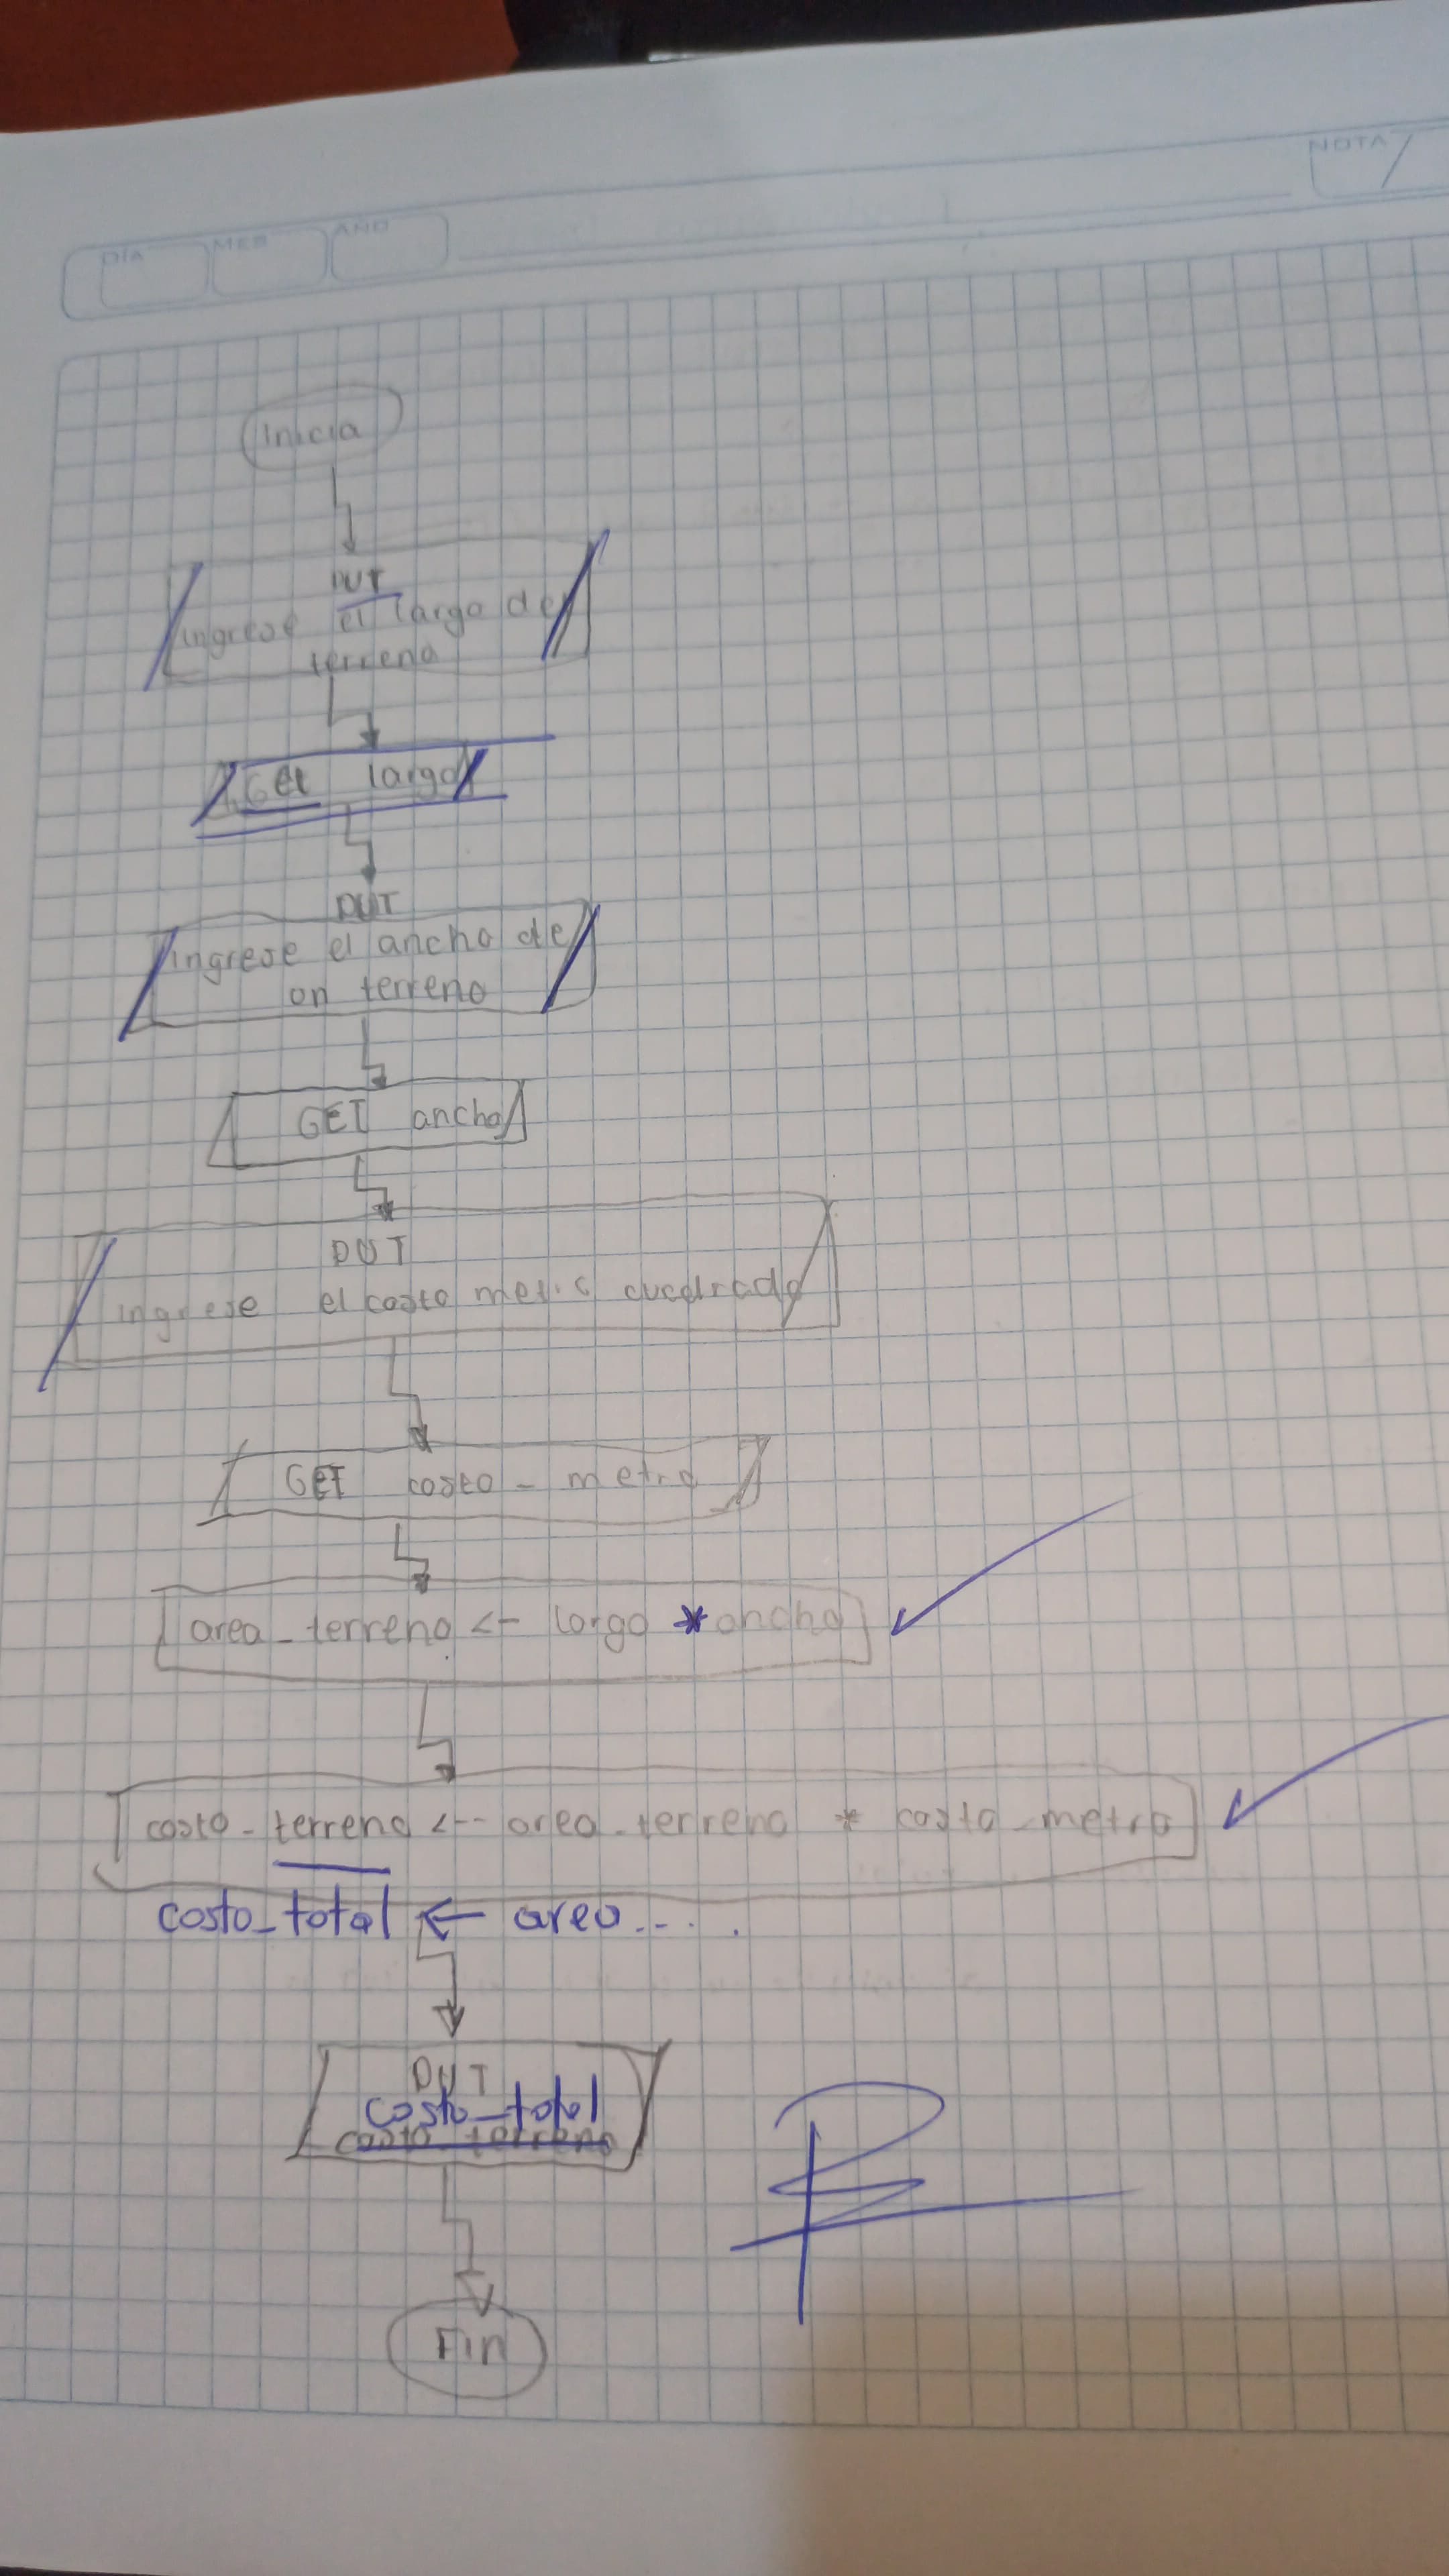 NOTA
DÍA MES AÑO
Inicia
PUT
ingrese el largo de
terreno
Get largo
PUT
ingrese el ancho de
on terreno
GET ancho
PUT
ingrese el costo metro cuadrado
GET costo - metro
area_terreno <- largo * ancho
costo-terreno <-- area_terreno * costo_metro
costo_total ← area.... .
PUT
costo_total
costo terreno
Fin